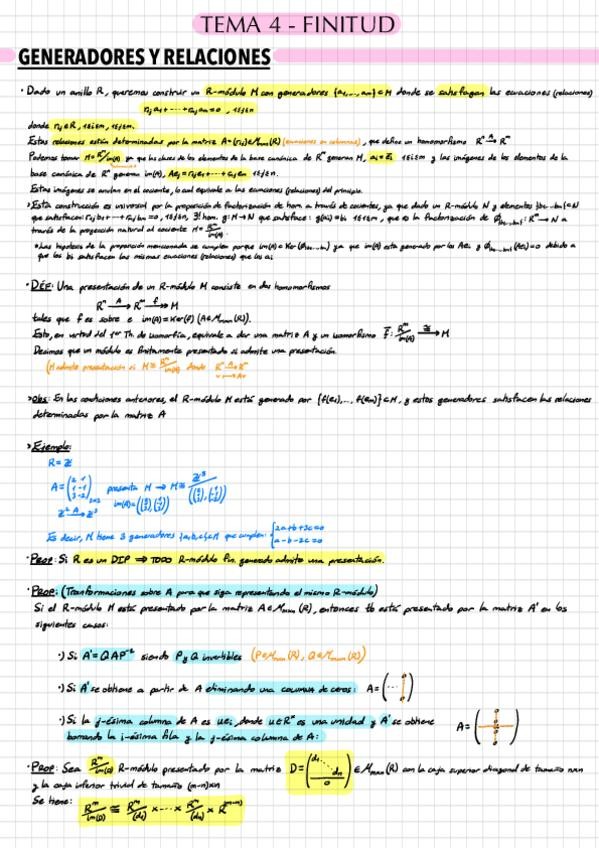 TEMA 4 - FINITUD
GENERADORES Y RELACIONES
· Dado un anillo R, queremos construir un R-módulo M con generadores {a₁,...,aₘ}⊂M donde se satisfagan las ecuaciones (relaciones)
r₁ⱼa₁+···+rₘⱼaₘ=0, 1≤j≤n
donde rᵢⱼ∈R, 1≤i≤m, 1≤j≤n.
Estas relaciones están determinadas por la matriz A=(rᵢⱼ)∈Mₘₓₙ(R) (ecuaciones en columnas), que define un homomorfismo Rⁿ →A Rᵐ
Podemos tomar M=Rᵐ/im(A) ya que las clases de los elementos de la base canónica de Rᵐ generan M, aᵢ=ēᵢ 1≤i≤m y las imágenes de los elementos de la
base canónica de Rⁿ generan im(A), Aeⱼ=r₁ⱼe₁+···+rₘⱼeₘ 1≤j≤n.
Estas imágenes se anulan en el cociente, lo cual equivale a las ecuaciones (relaciones) del principio.
Esta construcción es universal por la proposición de factorización de hom. a través de cocientes, ya que dado un R-módulo N y elementos {b₁,...,bₘ}⊂N
que satisfacen: r₁ⱼb₁+···+rₘⱼbₘ=0, 1≤j≤n, ∃! hom. g: M→N que satisface: g(aᵢ)=bᵢ 1≤i≤m, que es la factorización de ϕ: Rᵐ→N a
través de la proyección natural al cociente M=Rᵐ/im(A)
Las hipótesis de la proposición mencionada se cumplen porque im(A)⊂Ker(ϕ) ya que im(A) está generado por los Aeⱼ y ϕ(Aeⱼ)=0 debido a
que los bᵢ satisfacen las mismas ecuaciones (relaciones) que los aᵢ
· DEF: Una presentación de un R-módulo M consiste en dos homomorfismos
Rⁿ →A Rᵐ →f M
tales que f es sobre e im(A)=Ker(f) (A∈Mₘₓₙ(R)).
Esto, en virtud del 1er Th. de Isomorfía, equivale a dar una matriz A y un isomorfismo f̄: Rᵐ/im(A) →≅ M
Decimos que un módulo es finitamente presentado si admite una presentación.
(M admite presentación si M≅Rᵐ/im(A) donde Rⁿ →A Rᵐ
v→Av
Obs: En las condiciones anteriores, el R-módulo M está generado por {f(e₁),..., f(eₘ)}⊂M, y estos generadores satisfacen las relaciones
determinadas por la matriz A
Ejemplo:
R=ℤ
A=(2 1; 1 -1; 3 -2)₃ₓ₂ presenta M → M≅ℤ³/⟨(2;1;3),(1;-1;-2)⟩
ℤ² →A ℤ³ im(A)=⟨(2;1;3),(1;-1;-2)⟩
Es decir, M tiene 3 generadores {a,b,c}⊂M que cumplen: {2a+b+3c=0
a-b-2c=0
· PROP: Si R es un DIP ⟹ TODO R-módulo fin. generado admite una presentación.
· PROP: (Tranformaciones sobre A para que siga representando el mismo R-módulo)
Si el R-módulo M está presentado por la matriz A∈Mₘₓₙ(R), entonces tb está presentado por la matriz A' en los
siguientes casos:
·) Si A'=QAP⁻¹ siendo P y Q invertibles (P∈Mₙₓₙ(R), Q∈Mₘₓₘ(R))
·) Si A' se obtiene a partir de A eliminando una columna de ceros: A=(··· 0)
·) Si la j-ésima columna de A es ueᵢ, donde u∈R es una unidad y A' se obtiene
borrando la i-ésima fila y la j-ésima columna de A: A=
· PROP: Sea Rᵐ/im(D) R-módulo presentado por la matriz D=(d₁ ⋱ dₙ; 0)∈Mₘₓₙ(R) con la caja superior diagonal de tamaño nxn
y la caja inferior trivial de tamaño (m-n)xn
Se tiene: Rᵐ/im(D) ≅ R/(d₁) x ··· x R/(dₙ) x Rᵐ⁻ⁿ